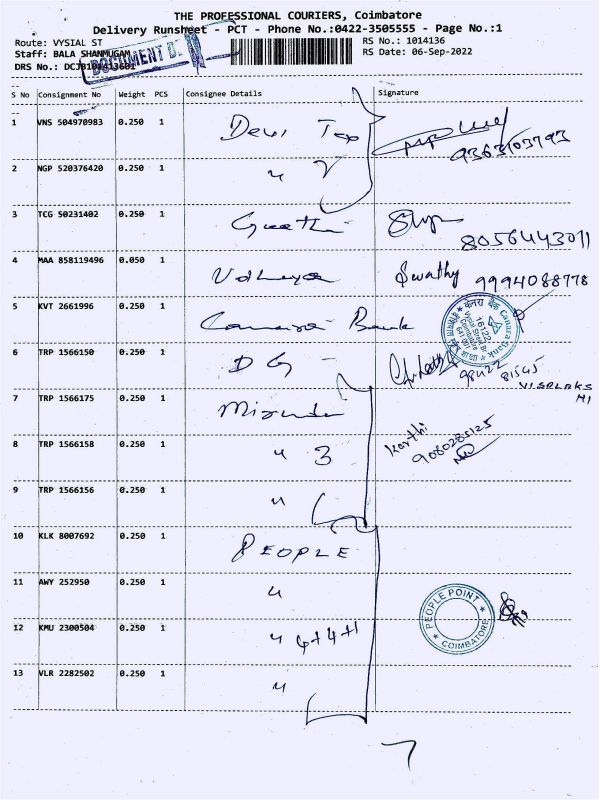 THE PROFESSIONAL COURIERS, Coimbatore
Delivery Runsheet - PCT - Phone No.:0422-3505555 - Page No.:1
Route: VYSIAL ST
RS No.: 1014136
Staff: BALA SHANMUGAM
RS Date: 06-Sep-2022
DRS No.:
DOCUMENT
S No Consignment No Weight PCS Consignee Details Signature
1 VNS 504970983 0.250 1 Devi Tex
9363103793
2 NGP 520376420 0.250 1 " 2
3 TCG 50231402 0.250 1 Geethi
8056443011
4 MAA 858119496 0.050 1 Udhaya Swathy 9994088778
5 KVT 2661996 0.250 1 Canara Bank
केनरा बैंक Canara Bank
16122
641 001
6 TRP 1566150 0.250 1 D G
98422 81545
7 TRP 1566175 0.250 1
8 TRP 1566158 0.250 1 " 3 Karthi
9080285125
9 TRP 1566156 0.250 1 "
10 KLK 8007692 0.250 1 PEOPLE
11 AWY 252950 0.250 1 "
PEOPLE POINT
COIMBATORE
12 KMU 2300504 0.250 1 " 4+4+1
13 VLR 2282502 0.250 1 "
7